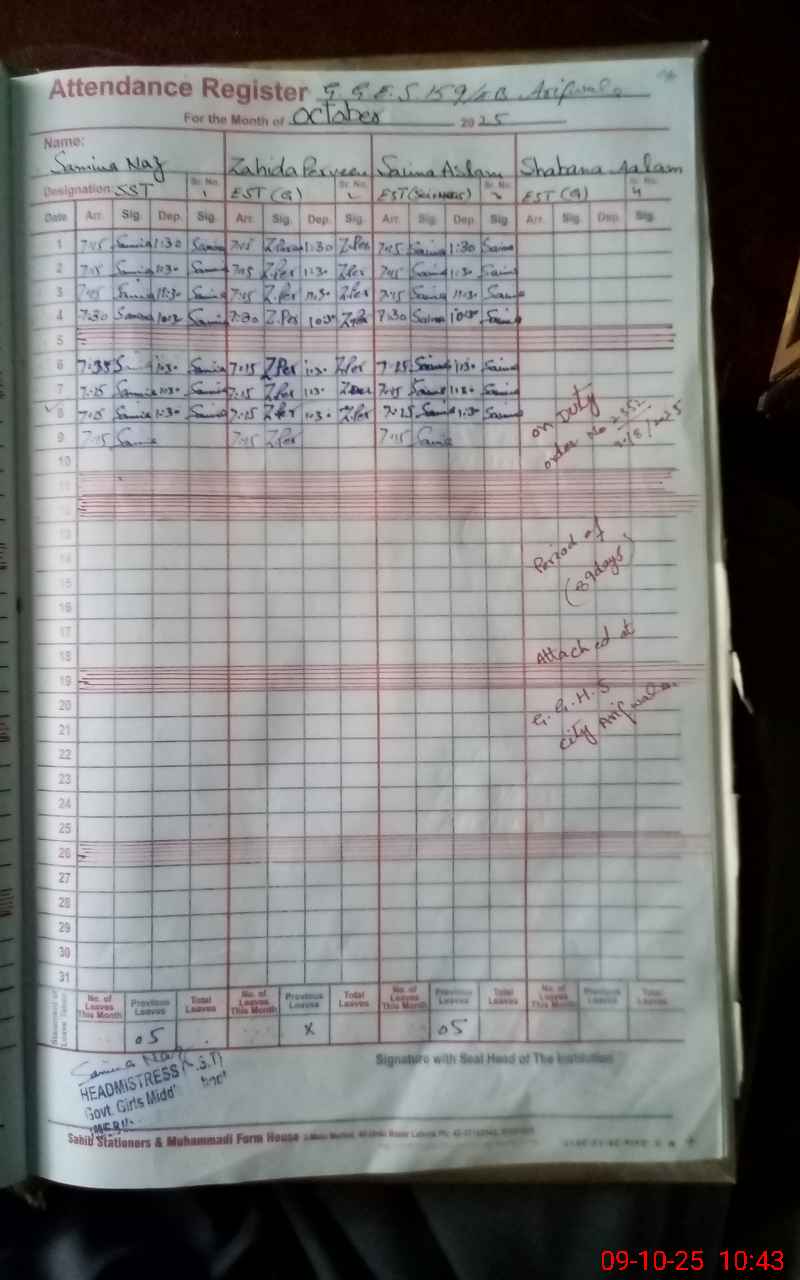 Attendance Register G.G.E.S 159/EB Arifwala
For the Month of October 2025
Name:
Samina Naz Zahida Perveen Saima Aslam Shabana Aslam
Designation: SST Sr. No. 1 EST (G) Sr. No. EST (Science) Sr. No. 3 EST (G) Sr. No. 4
Date Arr. Sig. Dep. Sig. Arr. Sig. Dep. Sig. Arr. Sig. Dep. Sig. Arr. Sig. Dep. Sig.
1 7:15 Samina 1:30 Samina 7:15 Z.Per 1:30 Z.Per 7:15 Saima 1:30 Saima
2 7:15 Samina 1:30 Samina 7:15 Z.Per 1:30 Z.Per 7:15 Saima 1:30 Saima
3 7:15 Samina 11:30 Samina 7:15 Z.Per 11:30 Z.Per 7:15 Saima 11:30 Saima
4 7:30 Samina 10:30 Samina 7:30 Z.Per 10:30 Z.Per 7:30 Saima 10:30 Saima
5
6 Samina 1:30 Samina 7:15 Z.Per 1:30 Z.Per 7:15 Saima 1:30 Saima
7 7:15 Samina 1:30 Samina 7:15 Z.Per 1:30 Z.Per 7:15 Saima 1:30 Saima
8 7:15 Samina 1:30 Samina 7:15 Z.Per 1:30 Z.Per 7:15 Saima 1:30 Saima
on Duty
9 7:15 Samina 7:15 Z.Per 7:15 Saima
order No 2352
/8/2025
10
11
12
13
14
Period of
15
(89 days)
16
17
18
Attached at
19
20
G.G.H.S
21
City Arifwala
22
23
24
25
26
27
28
29
30
31
Leave Taken No. of Leaves This Month Previous Leaves Total Leaves No. of Leaves This Month Previous Leaves Total Leaves No. of Leaves This Month Previous Leaves Total Leaves No. of Leaves This Month Previous Leaves Total Leaves
05 x 05
Samina Naz
Signature with Seal Head of The Institution
HEADMISTRESS
Govt. Girls
Sahib Stationers & Muhammadi Form House
09-10-25 10:43